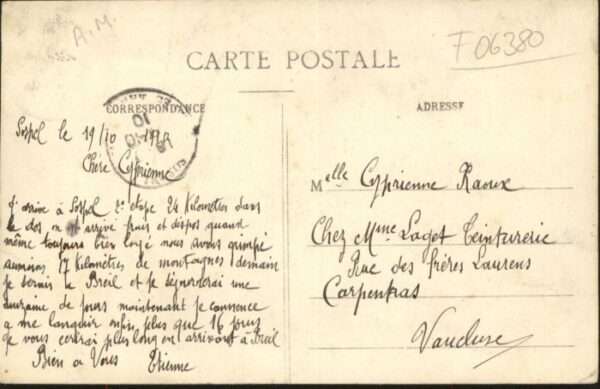 A.M.
F 06380
CARTE POSTALE
CORRESPONDANCE
ADRESSE
Sospel le 19/10
Chère Cyprienne
J'arrive à Sospel 2e etape 24 Kilometres dans
le dos on est arrivé frais et dispos quand
même toujours bien logé nous avons grimpé
aumoins 17 Kilometres de montagnes demain
je serais a Breil et je séjournerai une
quizaine de jours maintenant je commence
a me languir enfin plus que 16 jours
je vous ecrirai plus long en arrivant à Breil
Bien a Vous Etienne
Melle Cyprienne Raoux
Chez Mme Laget Teinturerie
Rue des frères Laurens
Carpentras
Vaucluse